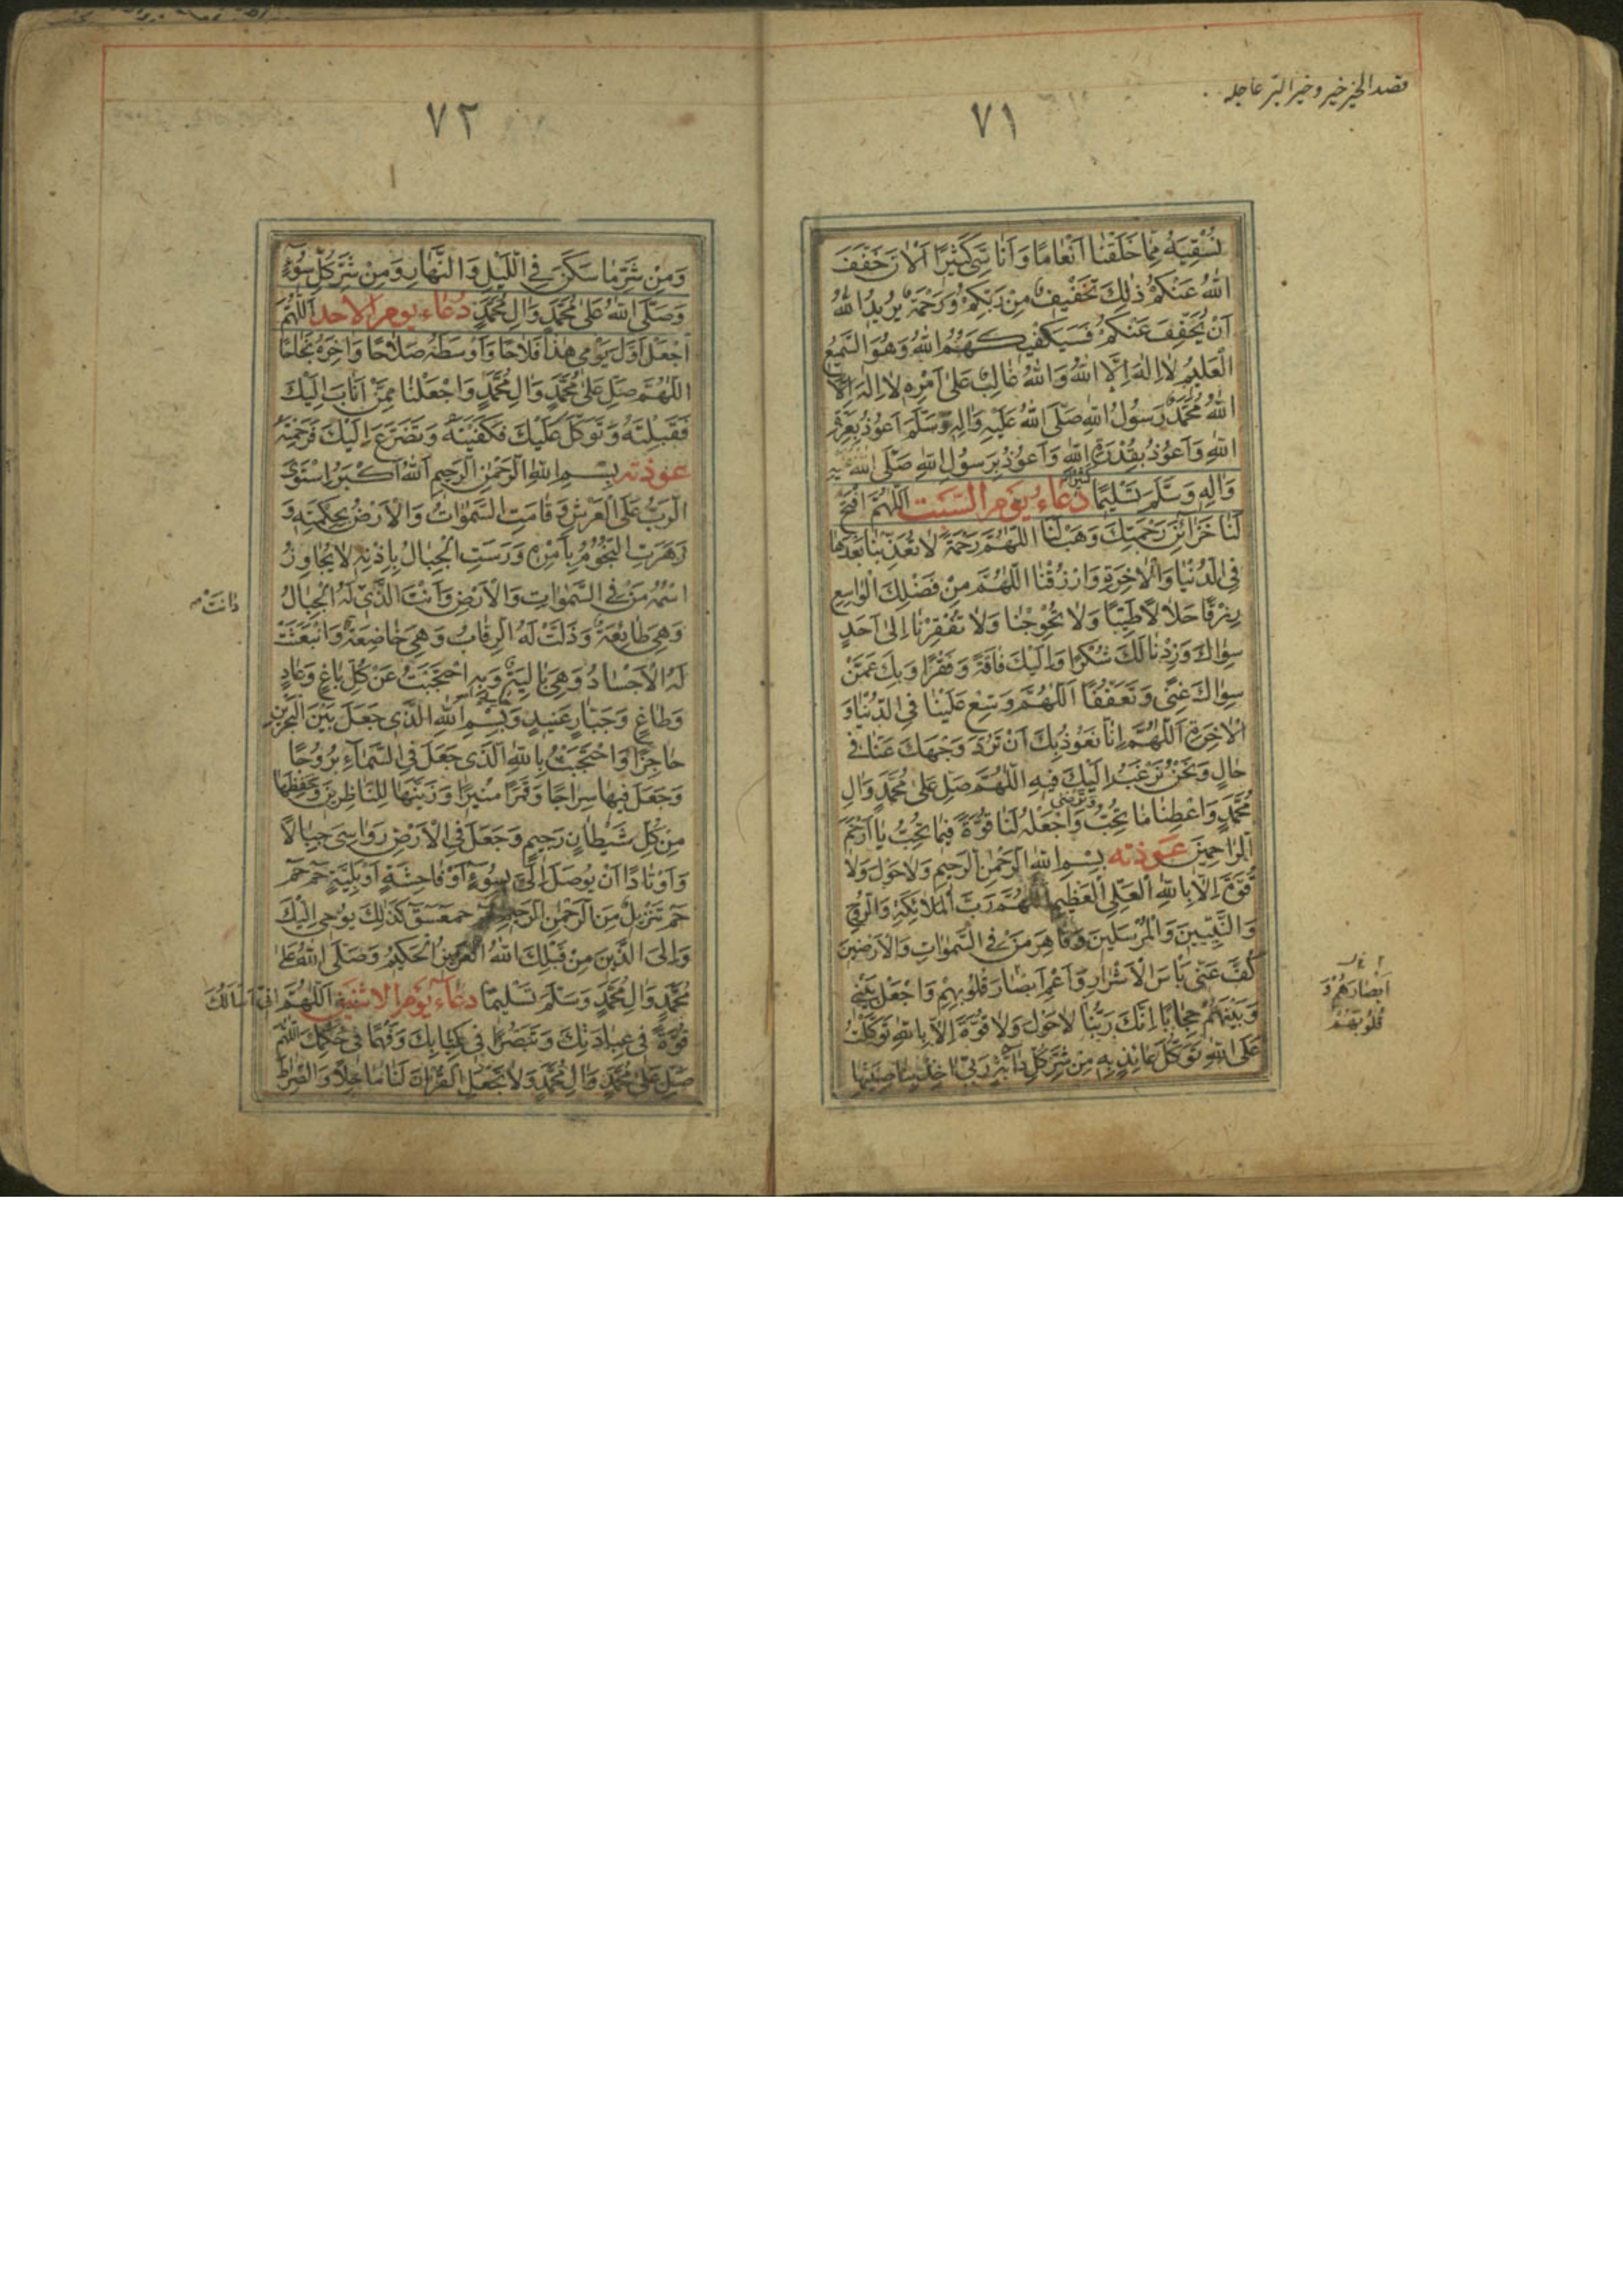 قصد الخير خير و خير البر عاجله
٧١
نُسْقِيَهُ مِمَّا خَلَقْنَا اَنْعَامًا وَاَنَاسِيَّ كَثِيرًا اَلْآنَ خَفَّفَ
اللهُ عَنْكُمْ ذٰلِكَ تَخْفِيفٌ مِنْ رَبِّكُمْ وَرَحْمَةٌ يُرِيدُ اللهُ
اَنْ يُخَفِّفَ عَنْكُمْ فَسَيَكْفِيكَهُمُ اللهُ وَهُوَ السَّمِيعُ
الْعَلِيمُ لَا اِلٰهَ اِلَّا اللهُ وَاللهُ غَالِبٌ عَلٰى اَمْرِهِ لَا اِلٰهَ اِلَّا
اللهُ مُحَمَّدٌ رَسُولُ اللهِ صَلَّى اللهُ عَلَيْهِ وَاٰلِهِ وَسَلَّمَ اَعُوذُ بِعِزَّةِ
اللهِ وَاَعُوذُ بِقُدْرَةِ اللهِ وَاَعُوذُ بِرَسُولِ اللهِ صَلَّى اللهُ عَلَيْهِ
وَاٰلِهِ وَسَلَّمَ تَسْلِيمًا كَثِيرًا دُعَاءُ يَوْمِ السَّبْتِ اَللّٰهُمَّ افْتَحْ
لَنَا خَزَائِنَ رَحْمَتِكَ وَهَبْ لَنَا اللّٰهُمَّ رَحْمَةً لَا تُعَذِّبْنَا بَعْدَهَا
فِي الدُّنْيَا وَالْاٰخِرَةِ وَارْزُقْنَا اللّٰهُمَّ مِنْ فَضْلِكَ الْوَاسِعِ
رِزْقًا حَلَالًا طَيِّبًا وَلَا تُحْوِجْنَا وَلَا تُفْقِرْنَا اِلٰى اَحَدٍ
سِوَاكَ وَزِدْنَا لَكَ شُكْرًا وَاِلَيْكَ فَاقَةً وَفَقْرًا وَبِكَ عَمَّنْ
سِوَاكَ غِنًى وَتَعَفُّفًا اَللّٰهُمَّ وَسِّعْ عَلَيْنَا فِي الدُّنْيَا وَ
الْاٰخِرَةِ اَللّٰهُمَّ اِنَّا نَعُوذُ بِكَ اَنْ تَرُدَّ وَجْهَكَ عَنَّا فِي
حَالٍ وَنَحْنُ نَرْغَبُ اِلَيْكَ فِيهِ اَللّٰهُمَّ صَلِّ عَلٰى مُحَمَّدٍ وَاٰلِ
مُحَمَّدٍ وَاَعْطِنَا مَا تُحِبُّ وَاجْعَلْهُ لَنَا قُوَّةً فِيمَا تُحِبُّ يَا اَرْحَمَ
الرَّاحِمِينَ عوذته بِسْمِ اللهِ الرَّحْمٰنِ الرَّحِيمِ وَلَا حَوْلَ وَلَا
قُوَّةَ اِلَّا بِاللهِ الْعَلِيِّ الْعَظِيمِ اَللّٰهُمَّ رَبَّ الْمَلَائِكَةِ وَالرُّوحِ
وَالنَّبِيِّينَ وَالْمُرْسَلِينَ وَقَاهِرَ مَنْ فِي السَّمٰوَاتِ وَالْاَرَضِينَ
كُفَّ عَنِّي بَاْسَ الْاَشْرَارِ وَاَعْمِ اَبْصَارَ قُلُوبِهِمْ وَاجْعَلْ بَيْنِي
اَبْصَارَهُمْ وَ
قُلُوبَهُمْ
وَبَيْنَهُمْ حِجَابًا اِنَّكَ رَبُّنَا لَا حَوْلَ وَلَا قُوَّةَ اِلَّا بِاللهِ تَوَكَّلْتُ
عَلَى اللهِ تَوَكُّلَ عَائِذٍ بِهِ مِنْ شَرِّ كُلِّ دَابَّةٍ رَبِّي اٰخِذٌ بِنَاصِيَتِهَا
٧٢
وَمِنْ شَرِّ مَا سَكَنَ فِي اللَّيْلِ وَالنَّهَارِ وَمِنْ شَرِّ كُلِّ سُوءٍ
وَصَلَّى اللهُ عَلٰى مُحَمَّدٍ وَاٰلِ مُحَمَّدٍ دُعَاءُ يَوْمِ الْاَحَدِ اَللّٰهُمَّ
اجْعَلْ اَوَّلَ يَوْمِي هٰذَا فَلَاحًا وَاَوْسَطَهُ صَلَاحًا وَاٰخِرَهُ نَجَاحًا
اللّٰهُمَّ صَلِّ عَلٰى مُحَمَّدٍ وَاٰلِ مُحَمَّدٍ وَاجْعَلْنَا مِمَّنْ اَنَابَ اِلَيْكَ
فَقَبِلْتَهُ وَتَوَكَّلَ عَلَيْكَ فَكَفَيْتَهُ وَتَضَرَّعَ اِلَيْكَ فَرَحِمْتَهُ
عوذته بِسْمِ اللهِ الرَّحْمٰنِ الرَّحِيمِ اَللهُ اَكْبَرُ اِسْتَوَى
الرَّبُّ عَلَى الْعَرْشِ وَقَامَتِ السَّمٰوَاتُ وَالْاَرْضُ بِحِكْمَتِهِ وَ
زَهَرَتِ النُّجُومُ بِاَمْرِهِ وَرَسَتِ الْجِبَالُ بِاِذْنِهِ لَا يُجَاوِزُ
اسْمُهُ مَنْ فِي السَّمٰوَاتِ وَالْاَرْضِ وَاَنْتَ الَّذِي لَهُ الْجِبَالُ
دَانَتْ
وَهِيَ طَائِعَةٌ وَذَلَّتْ لَهُ الرِّقَابُ وَهِيَ خَاضِعَةٌ وَانْبَعَثَتْ
لَهُ الْاَجْسَادُ وَهِيَ بَالِيَةٌ وَبِهِ احْتَجَبْتُ عَنْ كُلِّ بَاغٍ وَعَادٍ
وَطَاغٍ وَجَبَّارٍ عَنِيدٍ وَبِسْمِ اللهِ الَّذِي جَعَلَ بَيْنَ الْبَحْرَيْنِ
حَاجِزًا وَاحْتَجَبْتُ بِاللهِ الَّذِي جَعَلَ فِي السَّمَاءِ بُرُوجًا
وَجَعَلَ فِيهَا سِرَاجًا وَقَمَرًا مُنِيرًا وَزَيَّنَهَا لِلنَّاظِرِينَ وَحَفِظَهَا
مِنْ كُلِّ شَيْطَانٍ رَجِيمٍ وَجَعَلَ فِي الْاَرْضِ رَوَاسِيَ جِبَالًا
وَاَوْتَادًا اَنْ يُوصَلَ اِلَيَّ بِسُوءٍ اَوْ فَاحِشَةٍ اَوْ بَلِيَّةٍ حٰمٓ حٰمٓ
حٰمٓ تَنْزِيلٌ مِنَ الرَّحْمٰنِ الرَّحِيمِ حٰمٓعٓسٓقٓ كَذٰلِكَ يُوحِي اِلَيْكَ
وَاِلَى الَّذِينَ مِنْ قَبْلِكَ اللهُ الْعَزِيزُ الْحَكِيمُ وَصَلَّى اللهُ عَلٰى
مُحَمَّدٍ وَاٰلِ مُحَمَّدٍ وَسَلَّمَ تَسْلِيمًا دُعَاءُ يَوْمِ الْاِثْنَيْنِ اَللّٰهُمَّ اِنِّي اَسْاَلُكَ
قُوَّةً فِي عِبَادَتِكَ وَتَبَصُّرًا فِي كِتَابِكَ وَفَهْمًا فِي حُكْمِكَ اللّٰهُمَّ
صَلِّ عَلٰى مُحَمَّدٍ وَاٰلِ مُحَمَّدٍ وَلَا تَجْعَلِ الْقُرْاٰنَ لَنَا مَاحِلًا وَالصِّرَاطَ